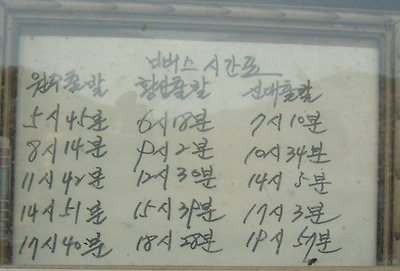 버스 시간표
원주출발 신대출발
5시45분 6시18분 7시10분
8시14분 9시2분 10시34분
11시42분 12시30분 14시5분
14시51분 15시39분 17시3분
17시40분 18시28분 19시57분